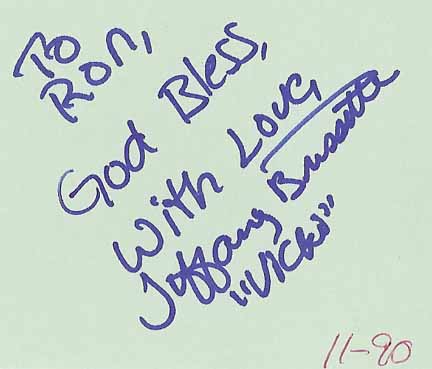 To
Ron,
God Bless,
With Love,
Tiffany Brissette
"Vicki"
11-90